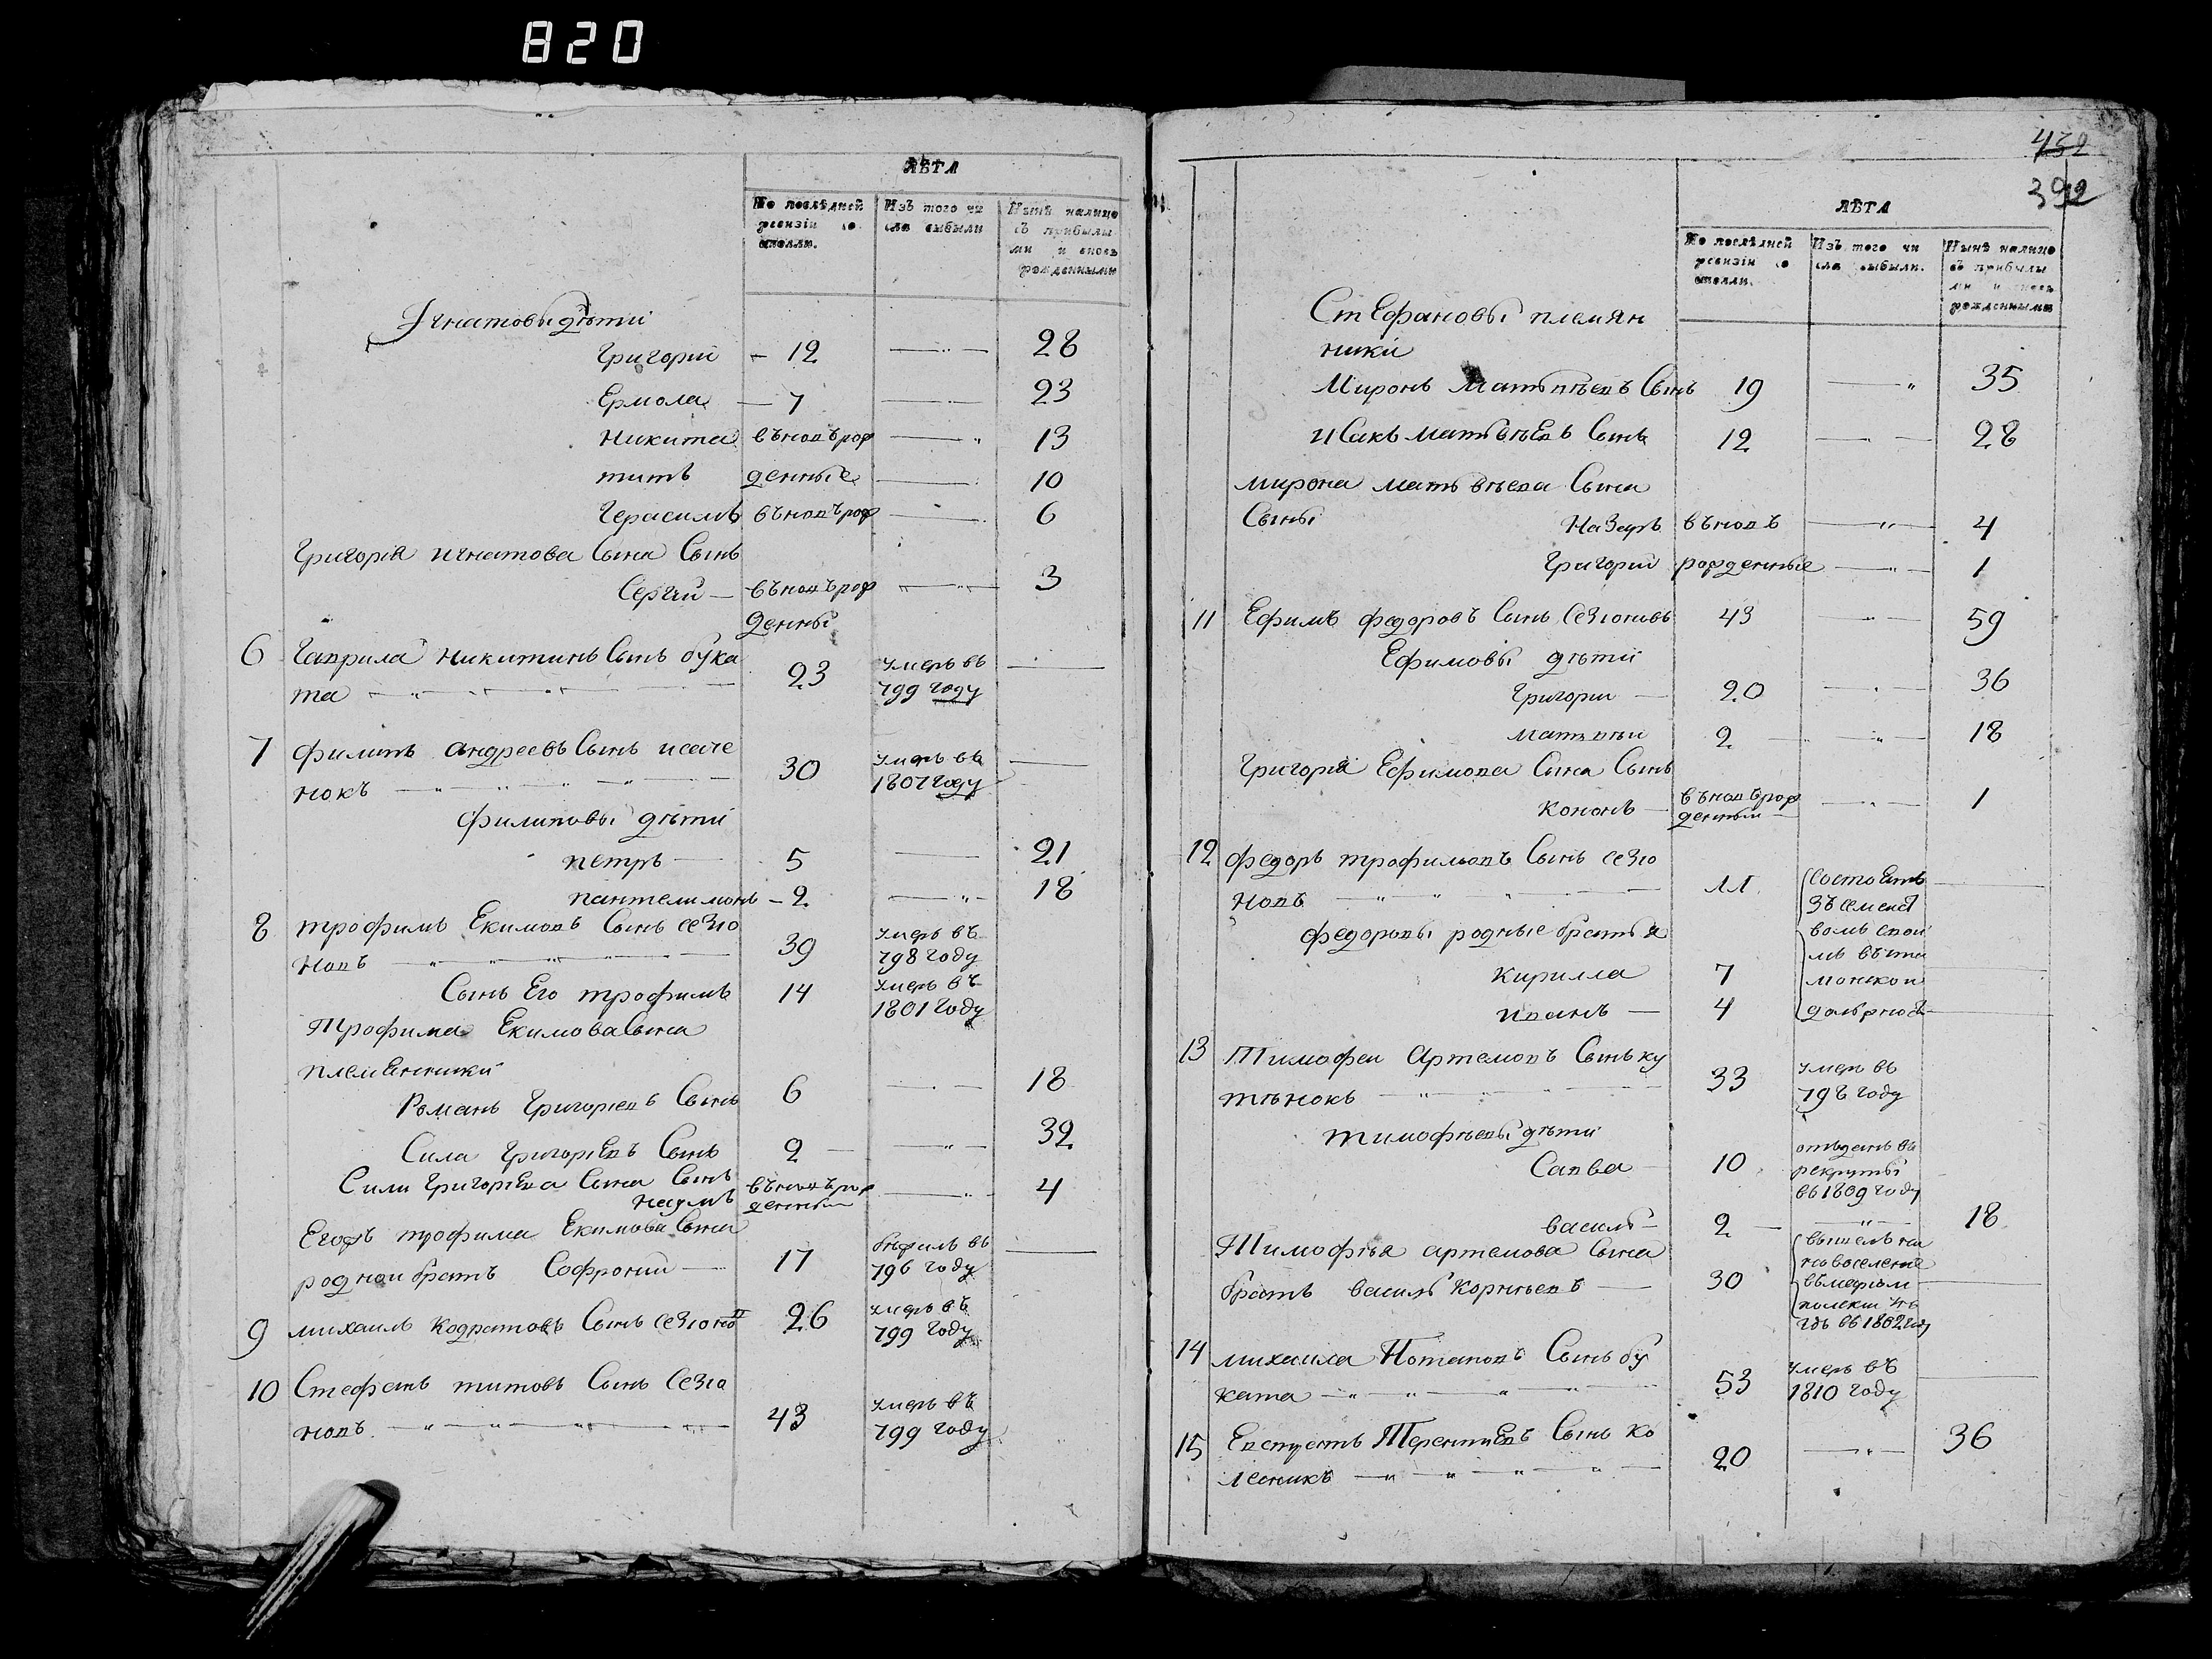 820
ЛѢТА
По послѣдней ревизіи состояли.
Изъ того числа выбыли
Нынѣ налицо съ прибылыми и вновь рожденными
Ігнатовы дѣти
Григорий — 12 — 28
Ермола — 7 — 23
Никита въновъ рож — 13
титъ денные — 10
Герасимъ въновъ рож — 6
Григорія игнатова Сына Сынъ
Сергий — въновъ рож — 3
денны
6 Гаврила Никитинъ Сынъ бука 23 умеръ въ —
та 799 году
7 филипъ андреевъ Сынъ исаче 30 умеръ въ —
нокъ 1807 году
филиповы дѣти
петръ — 5 — 21
пантелимонъ — 2 — 18
8 трофимъ Екимовъ Сынъ сезю 39 умеръ въ
новъ 798 году
Сынъ Его трофимъ 14 умеръ въ
1801 году
Трофима Екимова Сына
племЕнники
Романъ Григориевъ Сынъ 6 — 18
Сила ГригорЕвъ Сынъ 2 — 32
Сили ГригорЕва Сына Сынъ
наумъ въновъ рож — 4
денный
Егожъ трофима Екимова Сына
родной братъ Софроний — 17 бѣжилъ въ —
796 году
9 михаилъ Кодратовъ Сынъ сезюновъ 26 умеръ въ
799 году
10 Стефанъ титовъ Сынъ Сезю
новъ 43 умеръ въ
799 году
432
392
ЛѢТА
По послѣдней ревизіи состояли.
Изъ того числа выбыли.
Нынѣ налицо съ прибылыми и вновь рожденными
СтЕфановы племян
ники
Миронъ Матьвѣевъ Сынъ 19 — 35
иСакъ матьвѣЕвъ Сынъ 12 — 28
мирона матьвѣева Сына
Сыны НаЗаръ въновъ — 4
Григорий рожденные — 1
11 Ефимъ федоровъ Сынъ Сезюновъ 43 — 59
Ефимовы дѣти
Григори — 20 — 36
матьвѣи 2 — 18
Григория Ефимова Сына Сынъ
кононъ — въновъ рож — 1
денный
12 федоръ трофимовъ Сынъ сезю
новъ 11 состоЕтъ —
зъ семейст
федоровы родные братья вомъ свои
мъ въ
кирилла 7
иванъ — 4
13 Тимофеи Артемовъ Сынъ ку
тѣнокъ 33 умеръ въ
798 году
тимофѣевы дѣти
Савва — 10 отъданъ въ
рекруты
въ 1809 году
василь — 2 — 18
Тимофѣя артемова Сына
братъ василь Корнѣевъ — 30 вышелъ на
новоселение —
въ 1802 году
14 михаила Потаповъ Сынъ бу
ката 53 умеръ въ —
1810 году
15 Евстратъ ТерентиЕвъ Сынъ Ко
лесникъ 20 — 36